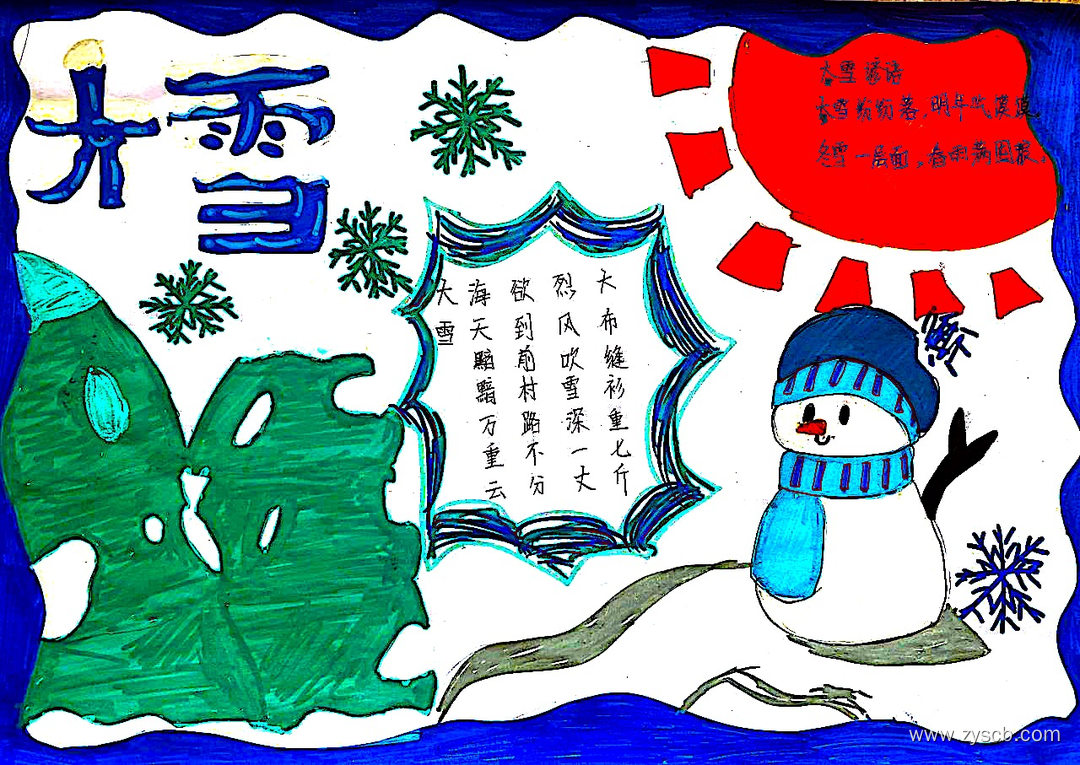 大雪
大雪谚语
大雪纷纷落,明年吃馍馍
冬雪一层面,春雨满囤粮。
大布缝衫重七斤
烈风吹雪深一丈
欲到前村路不分
海天黯黯万重云
大雪
www.zyscb.com